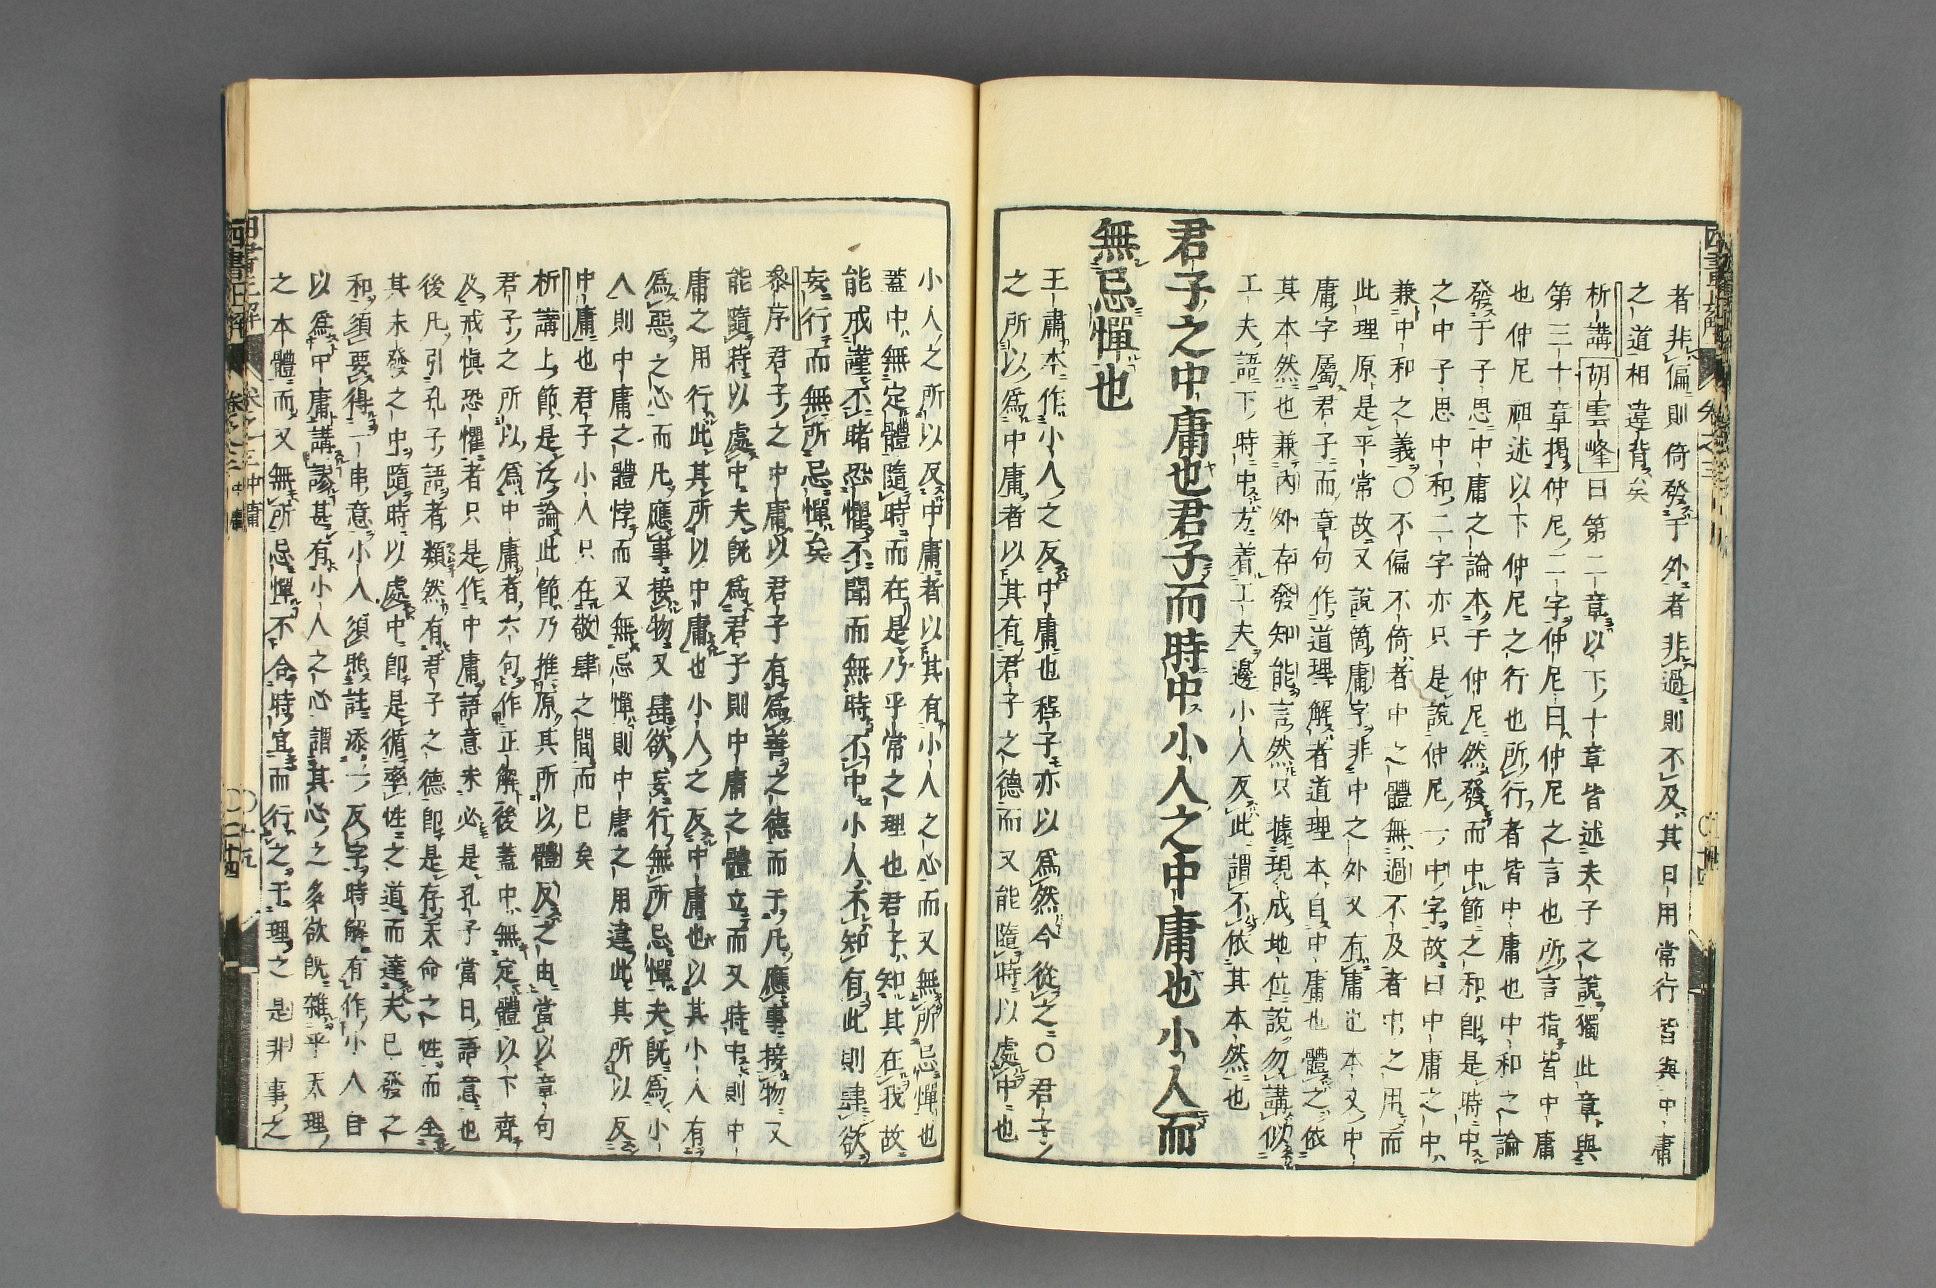 者非偏則倚發于外者非過則不及其日用常行皆與中庸
之道相違背矣
析講胡雲峰曰第二章以下十章皆述夫子之說獨此章與
第三十章揭仲尼二字仲尼曰仲尼之言也所言指皆中庸
也仲尼祖述以下仲尼之行也所行者皆中庸也中和之論
發于子思中庸之論本于仲尼然發而中節之和卽是時中
之中子思中和二字亦只是說仲尼一中字故曰中庸之中
兼中和之義〇不偏不倚者中之體無過不及者中之用而
此理原是平常故又說箇庸字非中之外又有庸也本文中
庸字屬君子而章句作道理解者道理本自中庸也體之依
其本然也兼內外存發知能言然只據現成地位說勿講似
工夫語下時中方着工夫邊小人反此謂不依其本然也
君子之中庸也君子而時中小人之中庸也小人而
無忌憚也
王肅本作小人之反中庸也程子亦以爲然今從之〇君子
之所以爲中庸者以其有君子之德而又能隨時以處中也
小人之所以反中庸者以其有小人之心而又無所忌憚也
蓋中無定體隨時而在是乃平常之理也君子知其在我故
能戒謹不睹恐懼不聞而無時不中小人不知有此則肆欲
妄行而無所忌憚矣
黍序君子之中庸以君子有爲善之德而于凡應事接物又
能隨時以處中夫旣爲君子則中庸之體立而又時中則中
庸之用行此其所以中庸也小人之反中庸也以其小人有
爲惡之心而凡應事接物又肆欲妄行無所忌憚夫旣爲小
人則中庸之體悖而又無忌憚則中庸之用違此其所以反
中庸也君子小人只在敬肆之間而已矣
析講上節是泛論此節乃推原其所以體反之由當以章句
君子之所以爲中庸者六句作正解後蓋中無定體以下齊
及戒愼恐懼者只是作中庸語意未必是孔子當日語意也
後凡引孔子語者類然有君子之德卽是存天命之性而全
其未發之中隨時以處中卽是循率性之道而達夫已發之
和須要得一串意小人須照註添一反字時解有作小人自
以爲中庸講謬甚有小人之心謂其心之多欲旣雜乎天理
之本體而又無所忌憚不合時宜而行之于理之是非事之